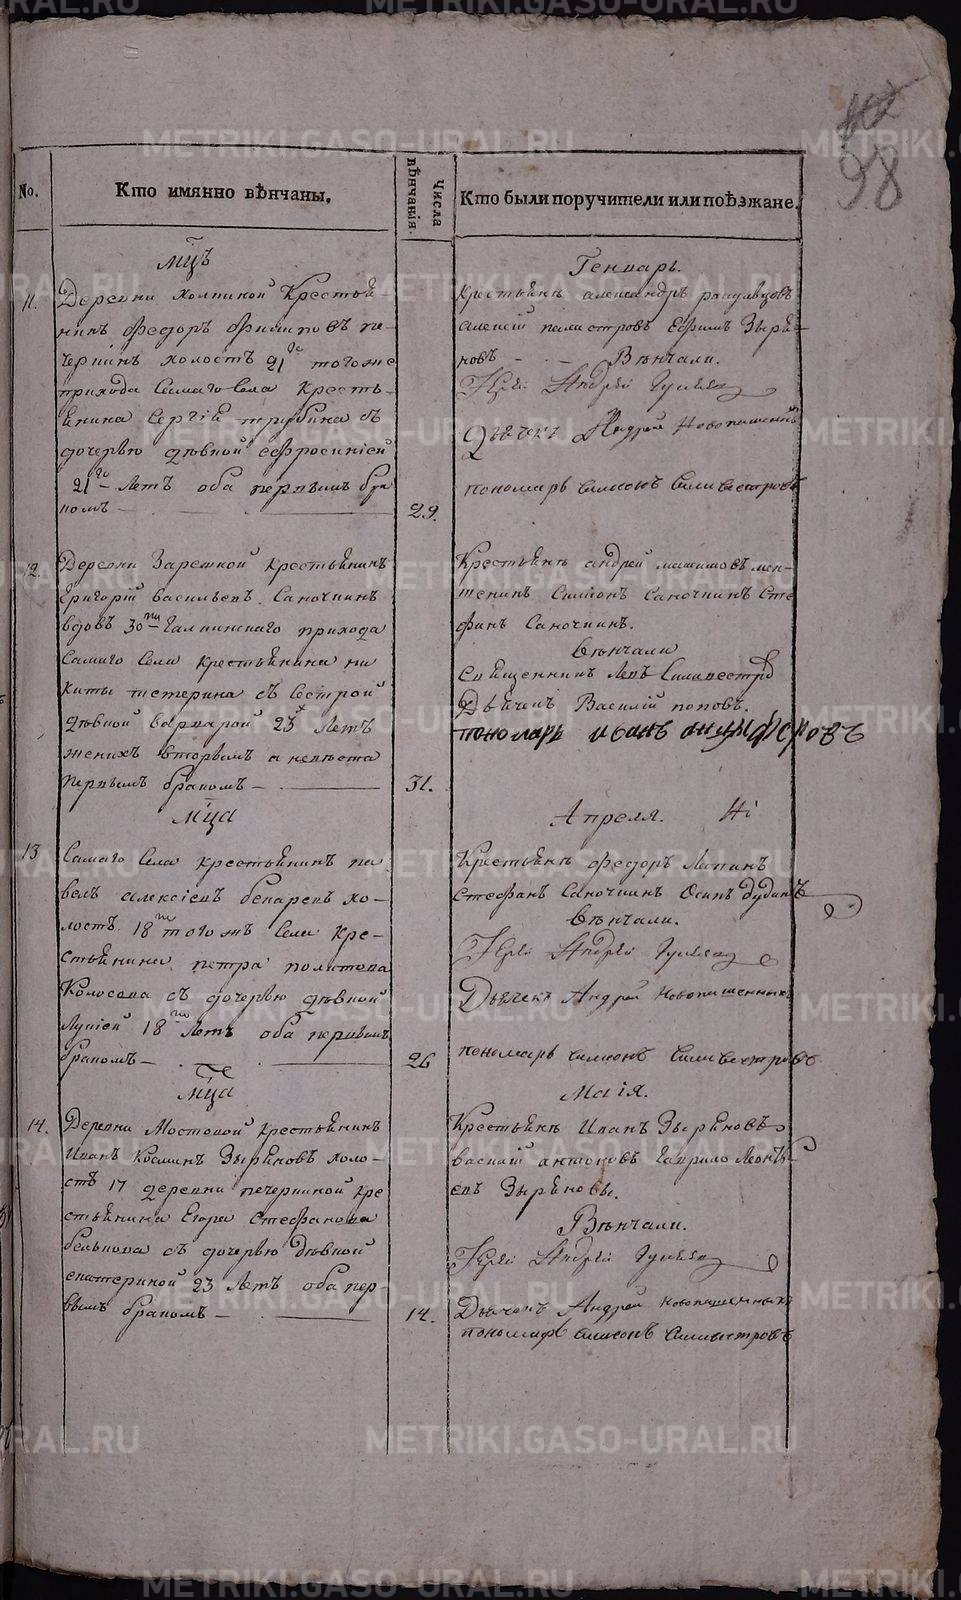 98
No. Кто имянно вѣнчаны. Числа вѣнчанія. Кто были поручители или поѣзжане.
Мцъ Генварь.
11. Деревни Крестья-
нинъ Федоръ Филиповъ пе-
холостъ 21го тогоже
прихода Самаго Села Кресть-
янина Сергія Трубина съ
дочерью дѣвкой Ефросиніей
21го Летъ оба первымъ бра
комъ — 29.
Крестьянѣ александръ
алексій Ефимъ Зыря-
новъ — Вѣнчали.
Іерей Андрей
Дьячекъ Андрей Новопашенный
пономарь симеонъ Силивестровъ
12. Деревни Заречной крестьянинъ
Григорій васильевъ Саночкинъ
вдовъ 30ти Галкинскаго прихода
Самаго Села крестьянина ни
киты пастерина съ Сестрой
дѣвкой варварой 23х Летъ
женихъ вторымъ а невѣста
первымъ бракомъ — 31.
Крестьянѣ андрей
Симіонъ Саночкинъ Сте
фанъ Саночкинъ.
вѣнчали
Священникъ Левъ Силивестровъ
Дьячекъ Василій поповъ.
пономарь иванъ анцыферовъ
мца Апреля.
13 Самаго Села крестьянинъ па
велъ алексіевъ хо-
лостъ 18ти тогожъ Села кре-
стьянина петра
Колосова съ дочерью дѣвкой
Лукіей 18ти Летъ оба первымъ
бракомъ — 26
Крестьянѣ Федоръ Лапинъ
стефанъ Саночкинъ Осипъ дудинъ
вѣнчали.
Іерей Андрей
Дьячекъ Андрей Новопашенныхъ
пономарь симеонъ Силивестровъ
мца Маія.
14. Деревни Мостовой крестьянинъ
Иванъ Козминъ Зыряновъ холо-
стъ 17 деревни печеркиной кре
стьянина Егора Стефанова
белькова съ дочерью дѣвкой
екатериной 23 Летъ оба пер-
вымъ бракомъ — 14.
Крестьянѣ Иванъ Зыряновъ
василій антоновъ Гаврило Леонть-
евъ Зыряновы.
Вѣнчали.
Іерей Андрей
Дьячекъ Андрей Новопашенныхъ
пономарь симеонъ Силивестровъ
METRIKI.GASO-URAL.RU